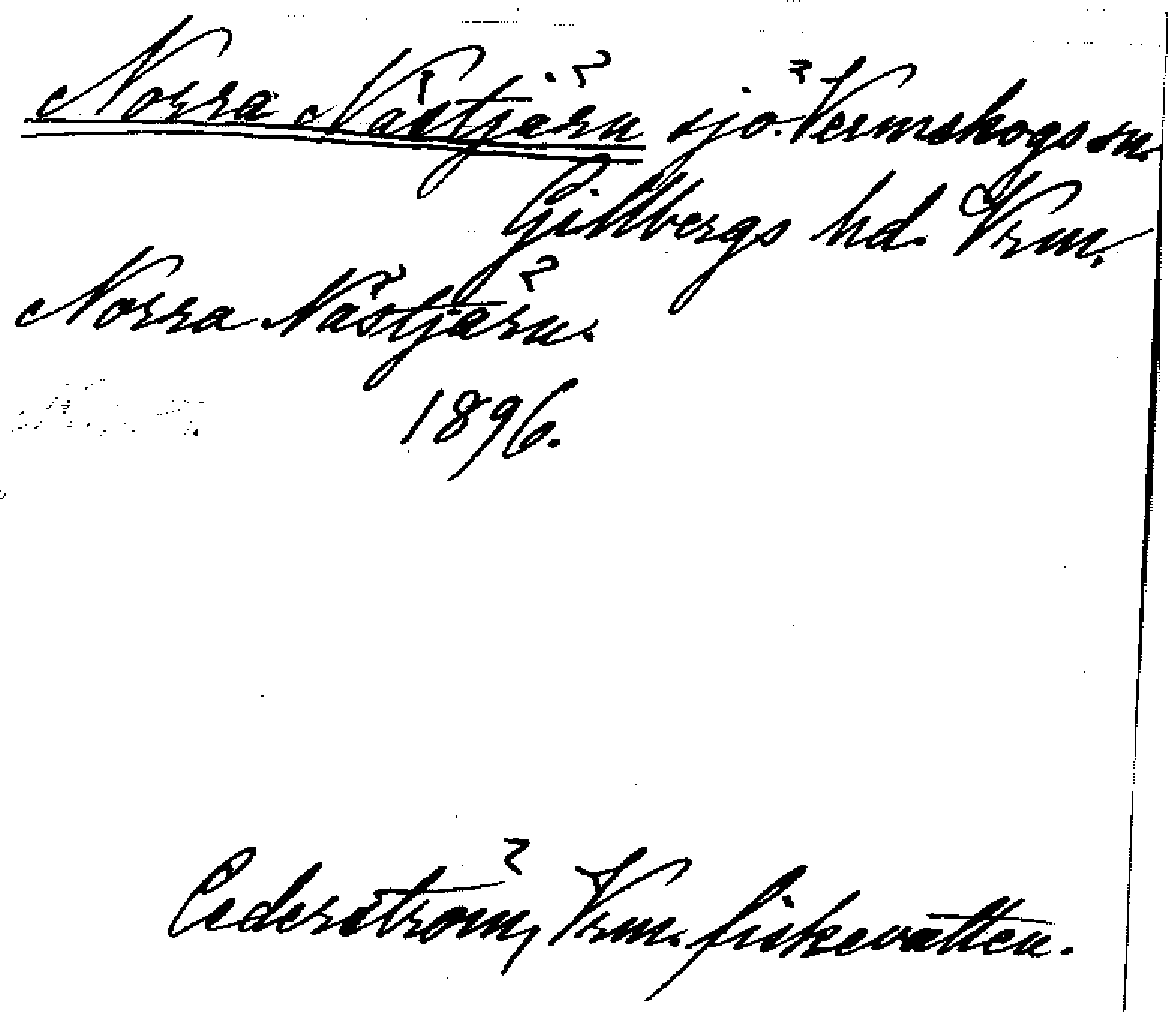 Norra Nästjärn sjö. Vermskogs sn.
Gillbergs hd. Vrm.
Norra Nästjärn.
1896.
Cederström, Vrm. fiskevatten.